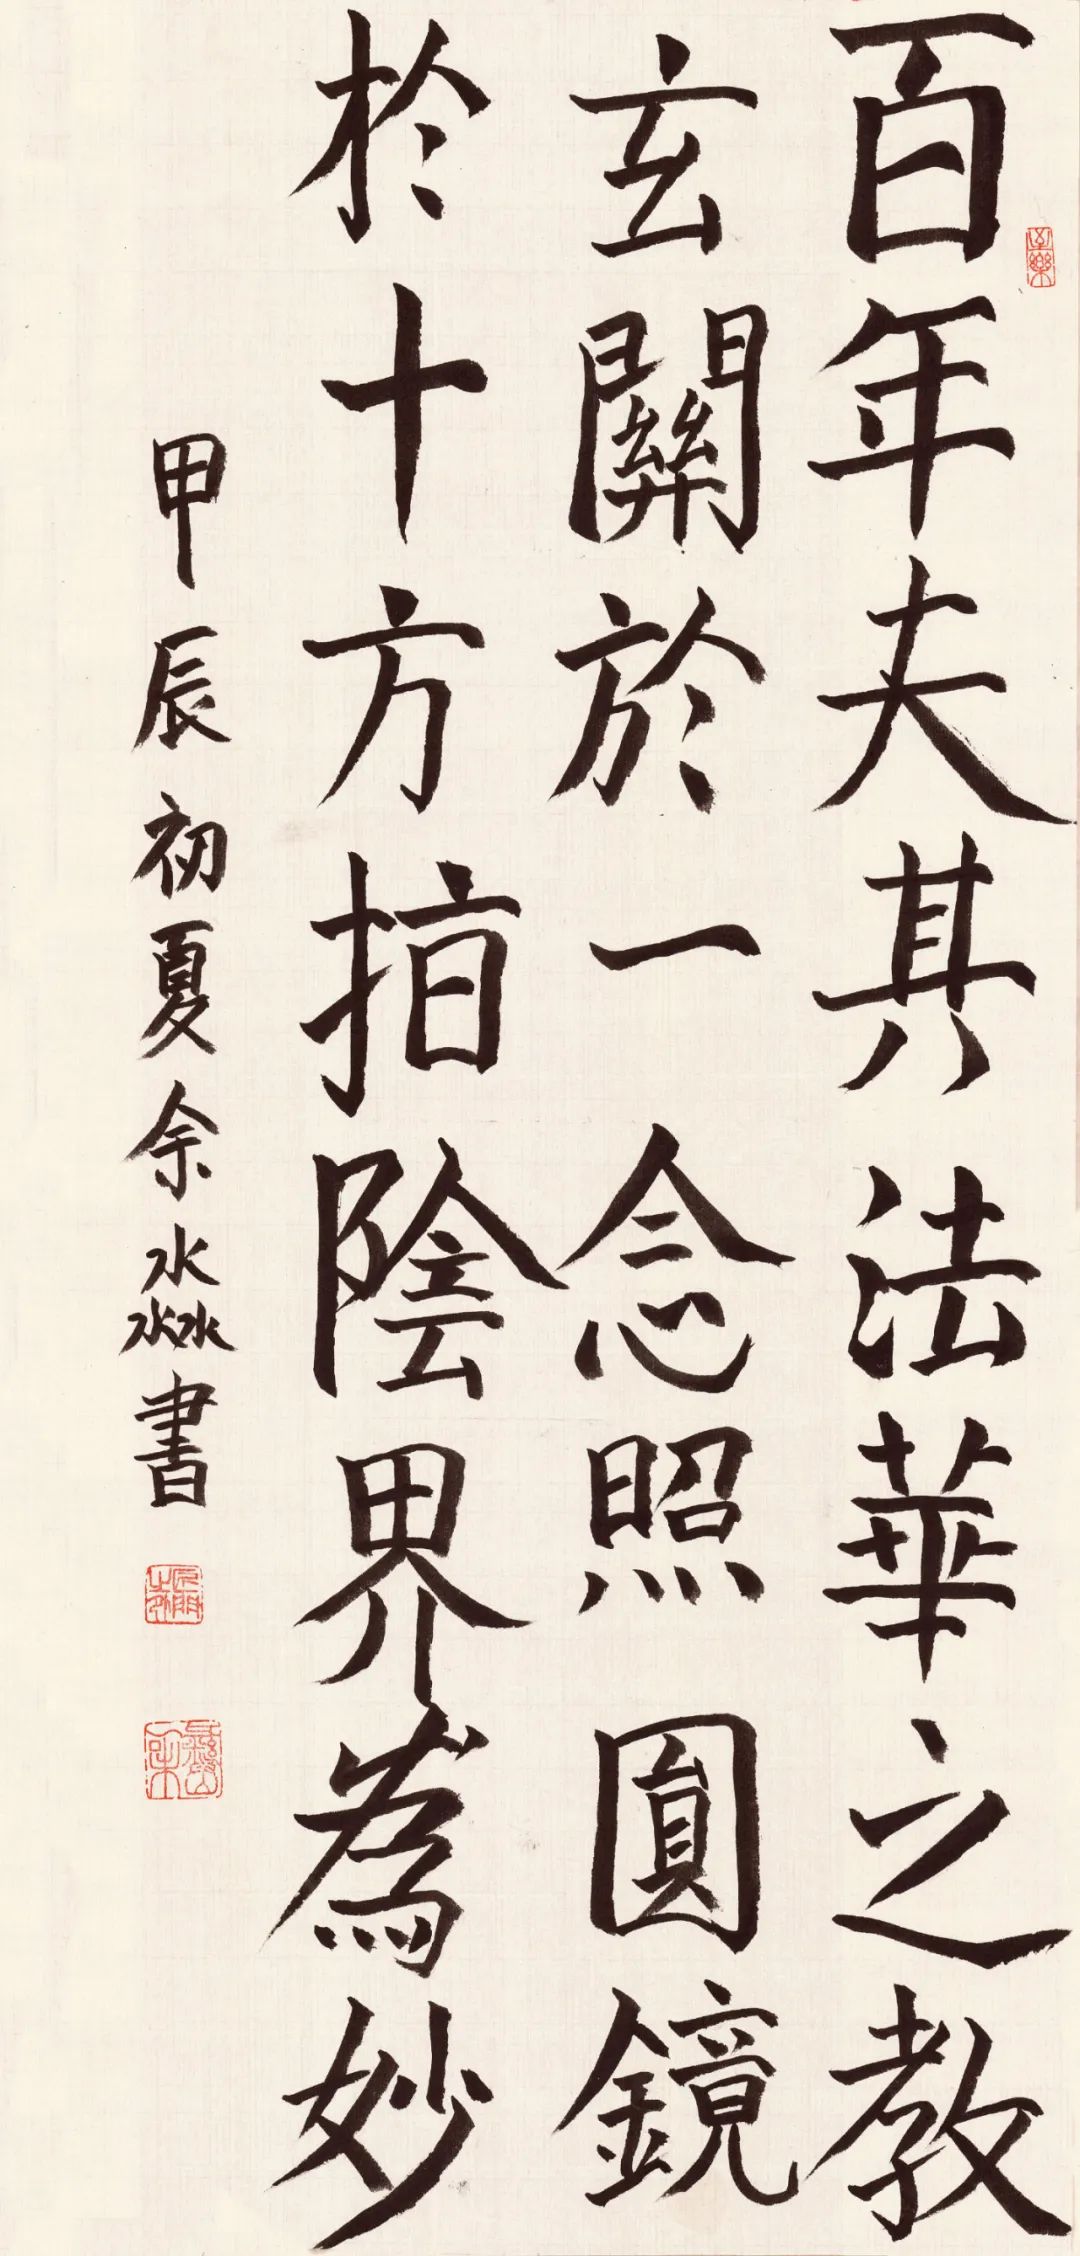 百年夫其法華之教
玄關於一念照圓鏡
扵十方指陰界為妙
甲辰初夏余淼書